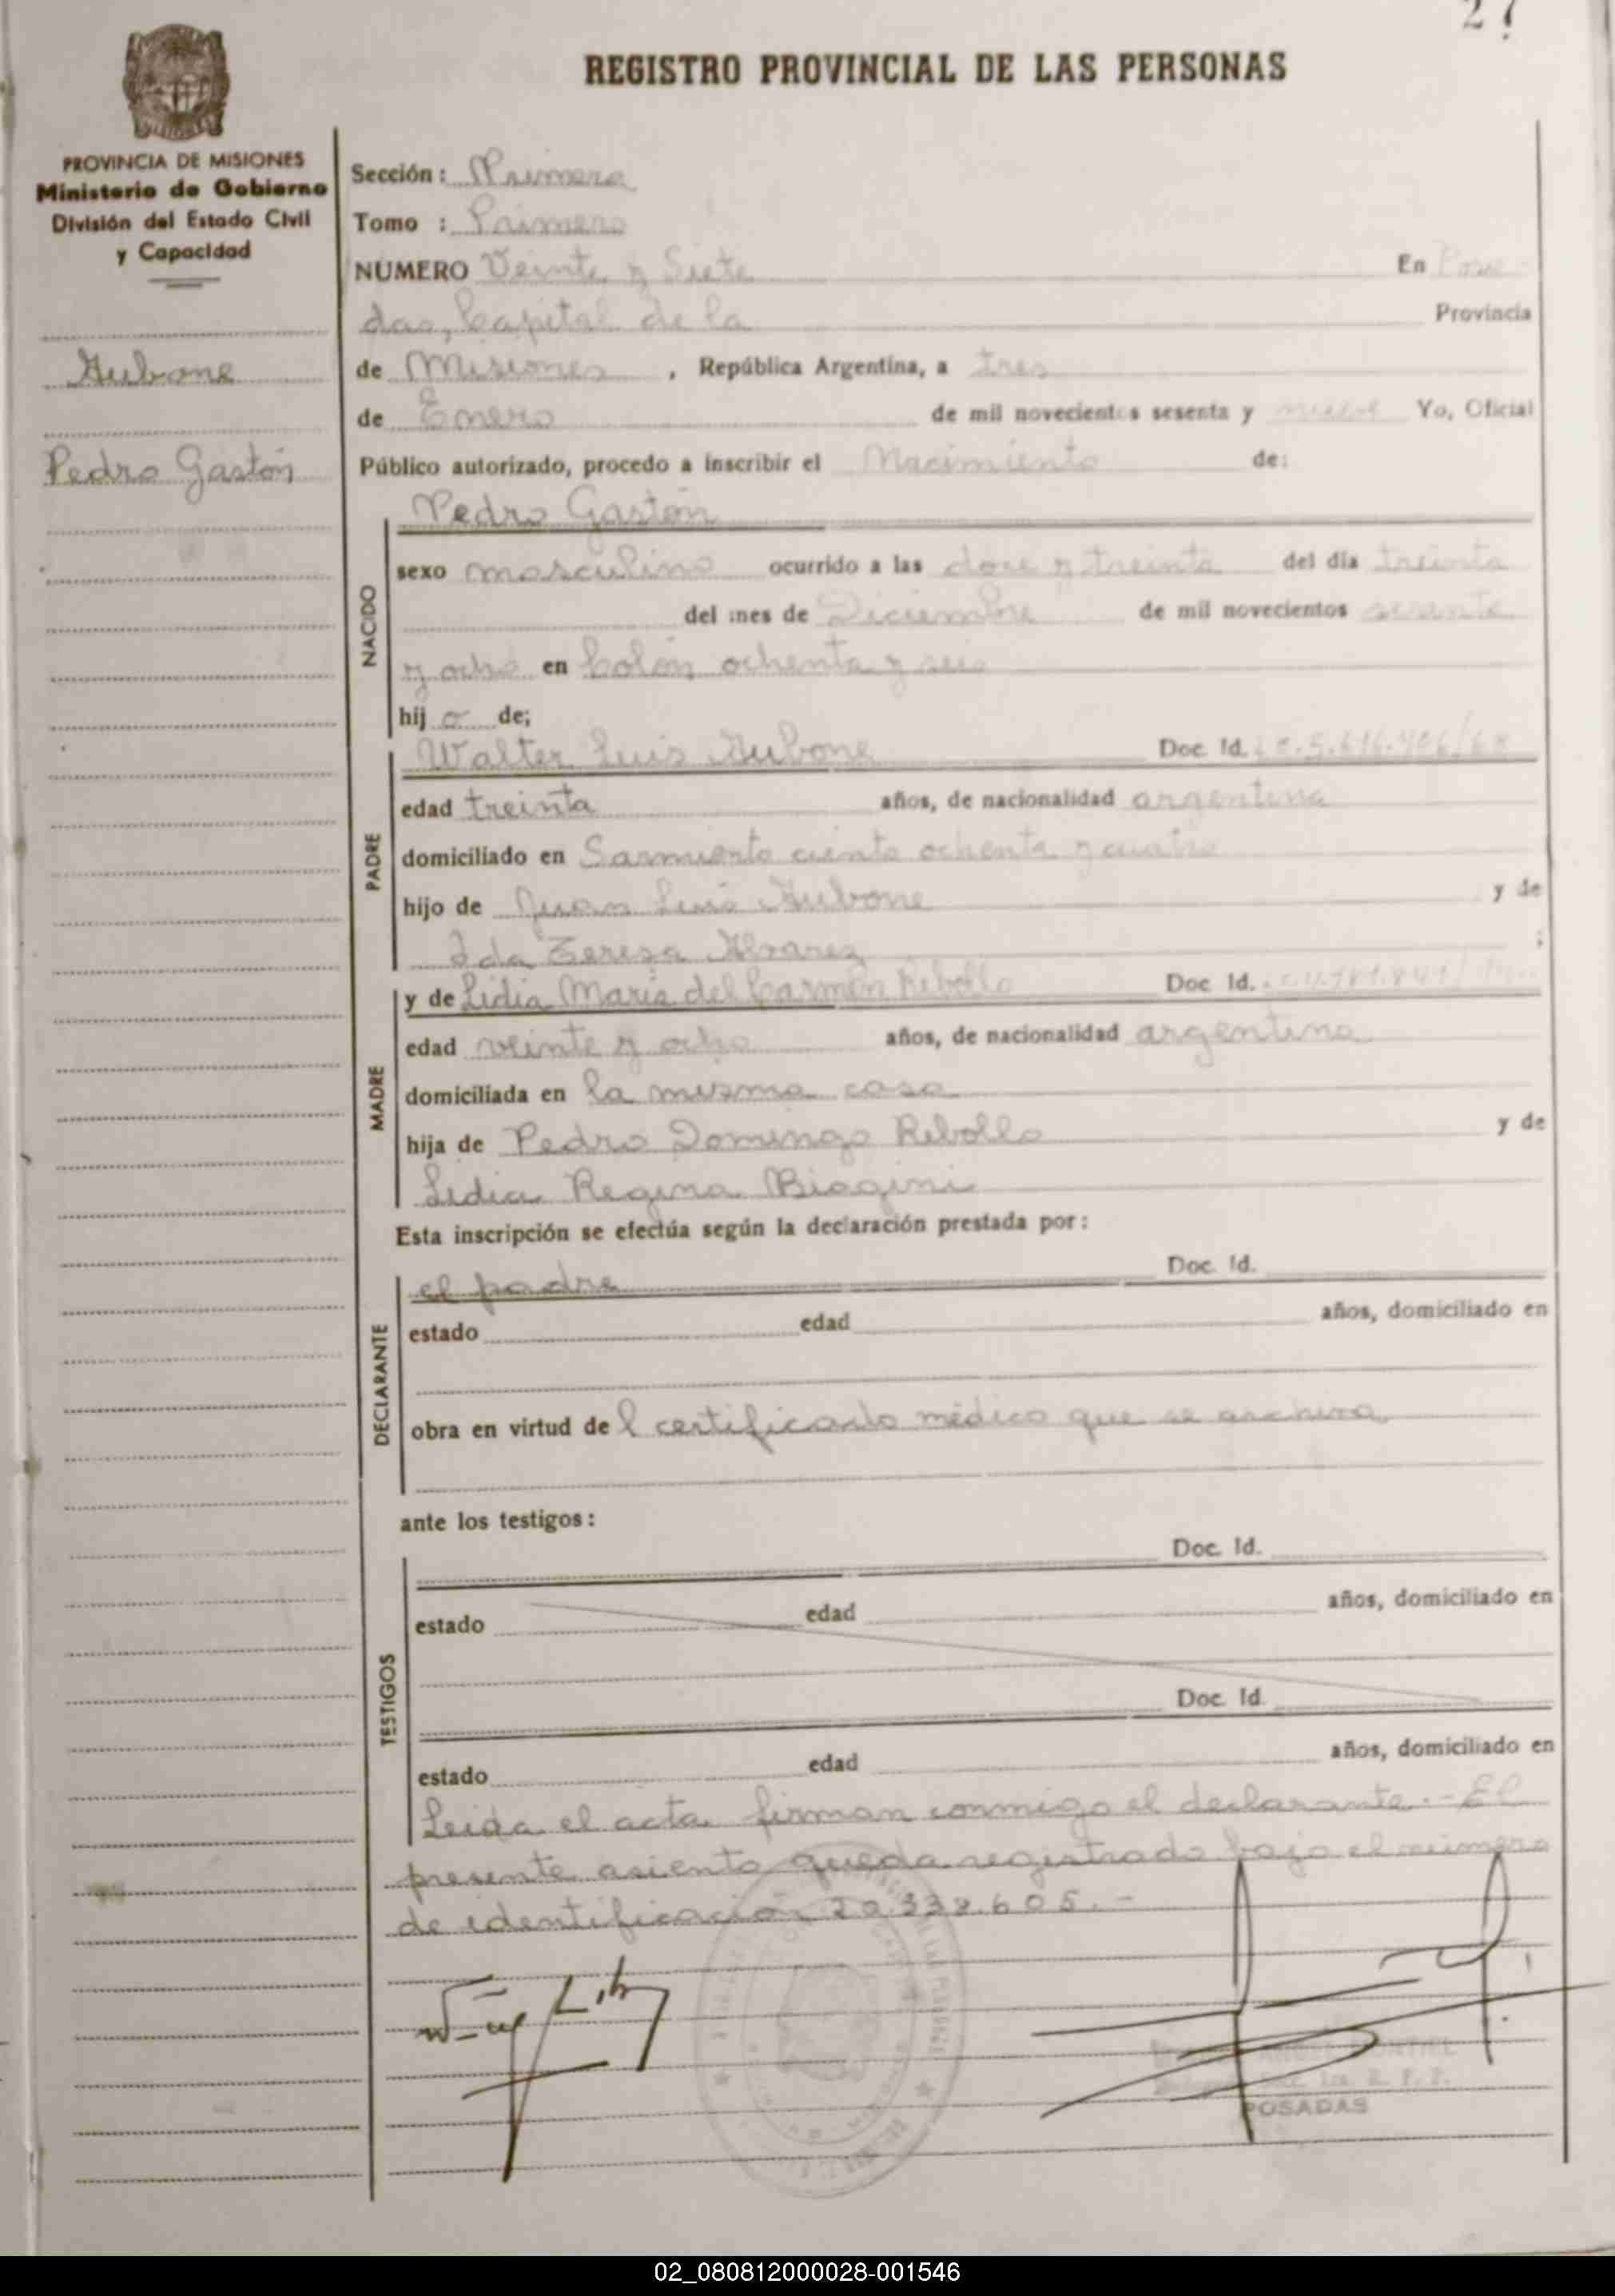 27
REGISTRO PROVINCIAL DE LAS PERSONAS
PROVINCIA DE MISIONES
Ministerio de Gobierno
División del Estado Civil
y Capacidad
Aubone
Pedro Gastón
Sección: Primera
Tomo : Primero
NUMERO Veinte y Siete En Posa-
das, Capital de la Provincia
de Misiones, República Argentina, a tres
de Enero de mil novecientos sesenta y nueve Yo, Oficial
Público autorizado, procedo a inscribir el Nacimiento de:
NACIDO
Pedro Gastón
sexo masculino ocurrido a las doce y treinta del día treinta
del mes de Diciembre de mil novecientos sesenta
y ocho en Colón ochenta y seis
hijo de;
PADRE
Walter Luis Aubone Doc. Id.
edad treinta años, de nacionalidad argentina
domiciliado en Sarmiento ciento ochenta y cuatro
hijo de Juan Luis Aubone y de
Ida Teresa Alvarez ;
MADRE
y de Lidia María del Carmen Rebollo Doc Id.
edad veinte y ocho años, de nacionalidad argentina
domiciliada en la misma casa
hija de Pedro Domingo Rebollo y de
Lidia Regina Biagini
Esta inscripción se efectúa según la declaración prestada por:
DECLARANTE
el padre Doc. Id.
estado edad años, domiciliado en
obra en virtud del certificado médico que se archiva
ante los testigos:
TESTIGOS
Doc. Id.
estado edad años, domiciliado en
Doc. Id.
estado edad años, domiciliado en
Leída el acta firman conmigo el declarante.- El
presente asiento queda registrado bajo el número
de identificación 20.338.605.-
MONTIEL
R. P. P.
POSADAS
02_080812000028-001546